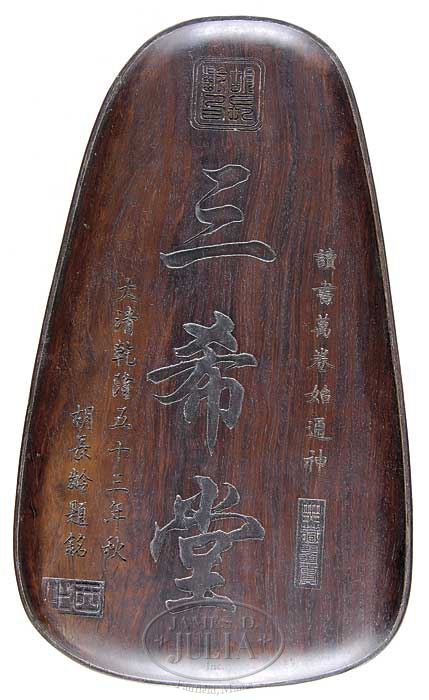 讀書萬卷始通神
三希堂
大清乾隆五十三年秋
胡長齡題銘
JAMES D.
JULIA
Inc.
Fairfield, Maine